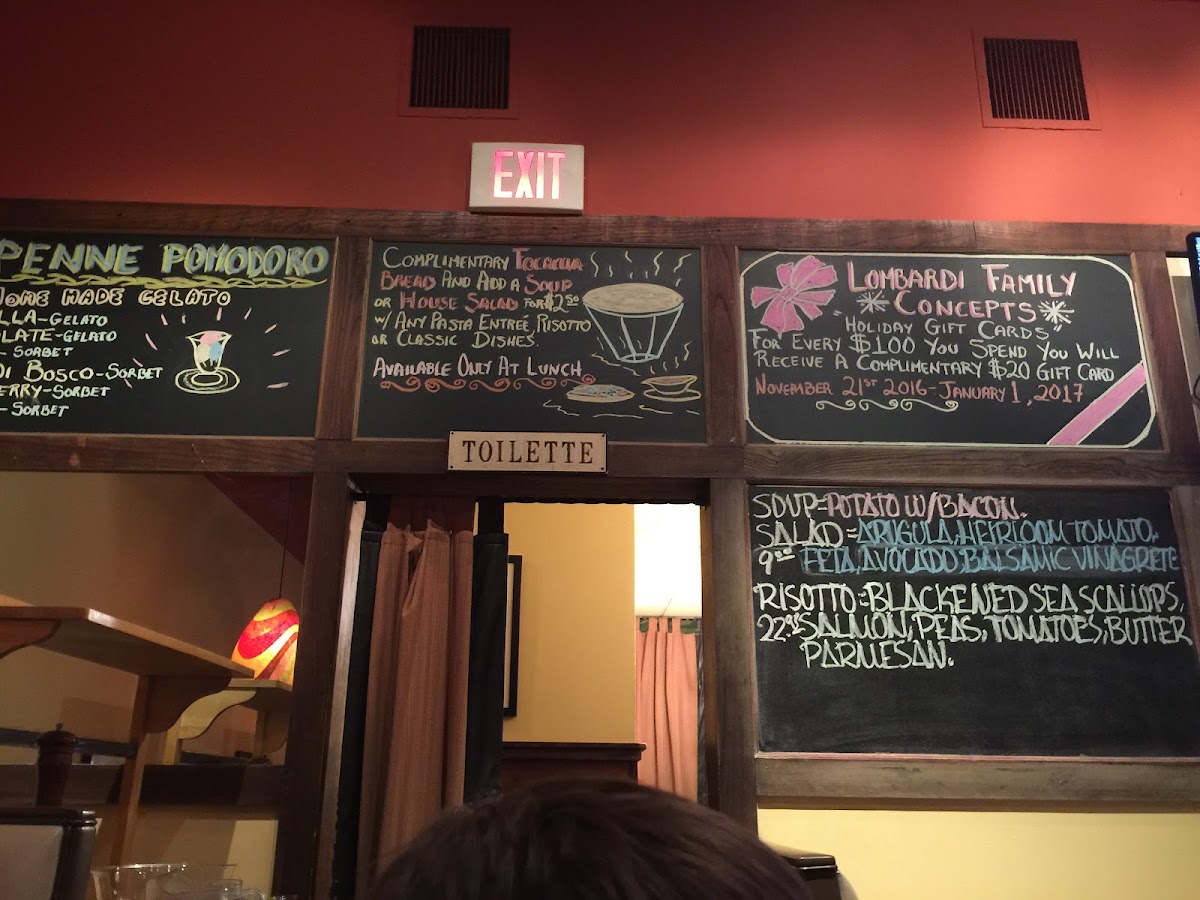 EXIT
PENNE POMODORO
HOME MADE GELATO
LLA-GELATO
LATE-GELATO
- SORBET
DI BOSCO-SORBET
ERRY-SORBET
- SORBET
COMPLIMENTARY FOCACCIA
BREAD AND ADD A SOUP
OR HOUSE SALAD FOR $2.50
W/ ANY PASTA ENTREÉ, RISOTTO
OR CLASSIC DISHES.
AVAILABLE ONLY AT LUNCH
LOMBARDI FAMILY
CONCEPTS
HOLIDAY GIFT CARDS
FOR EVERY $100 YOU SPEND YOU WILL
RECEIVE A COMPLIMENTARY $20 GIFT CARD
NOVEMBER 21ST 2016-JANUARY 1, 2017
TOILETTE
SOUP=POTATO W/BACON.
SALAD=ARUGULA, HEIRLOOM TOMATO,
9.00 FETA, AVOCADO, BALSAMIC VINAGRETE
RISOTTO=BLACKENED SEA SCALLOPS,
22.95 SALMON, PEAS, TOMATOES, BUTTER
PARMESAN.